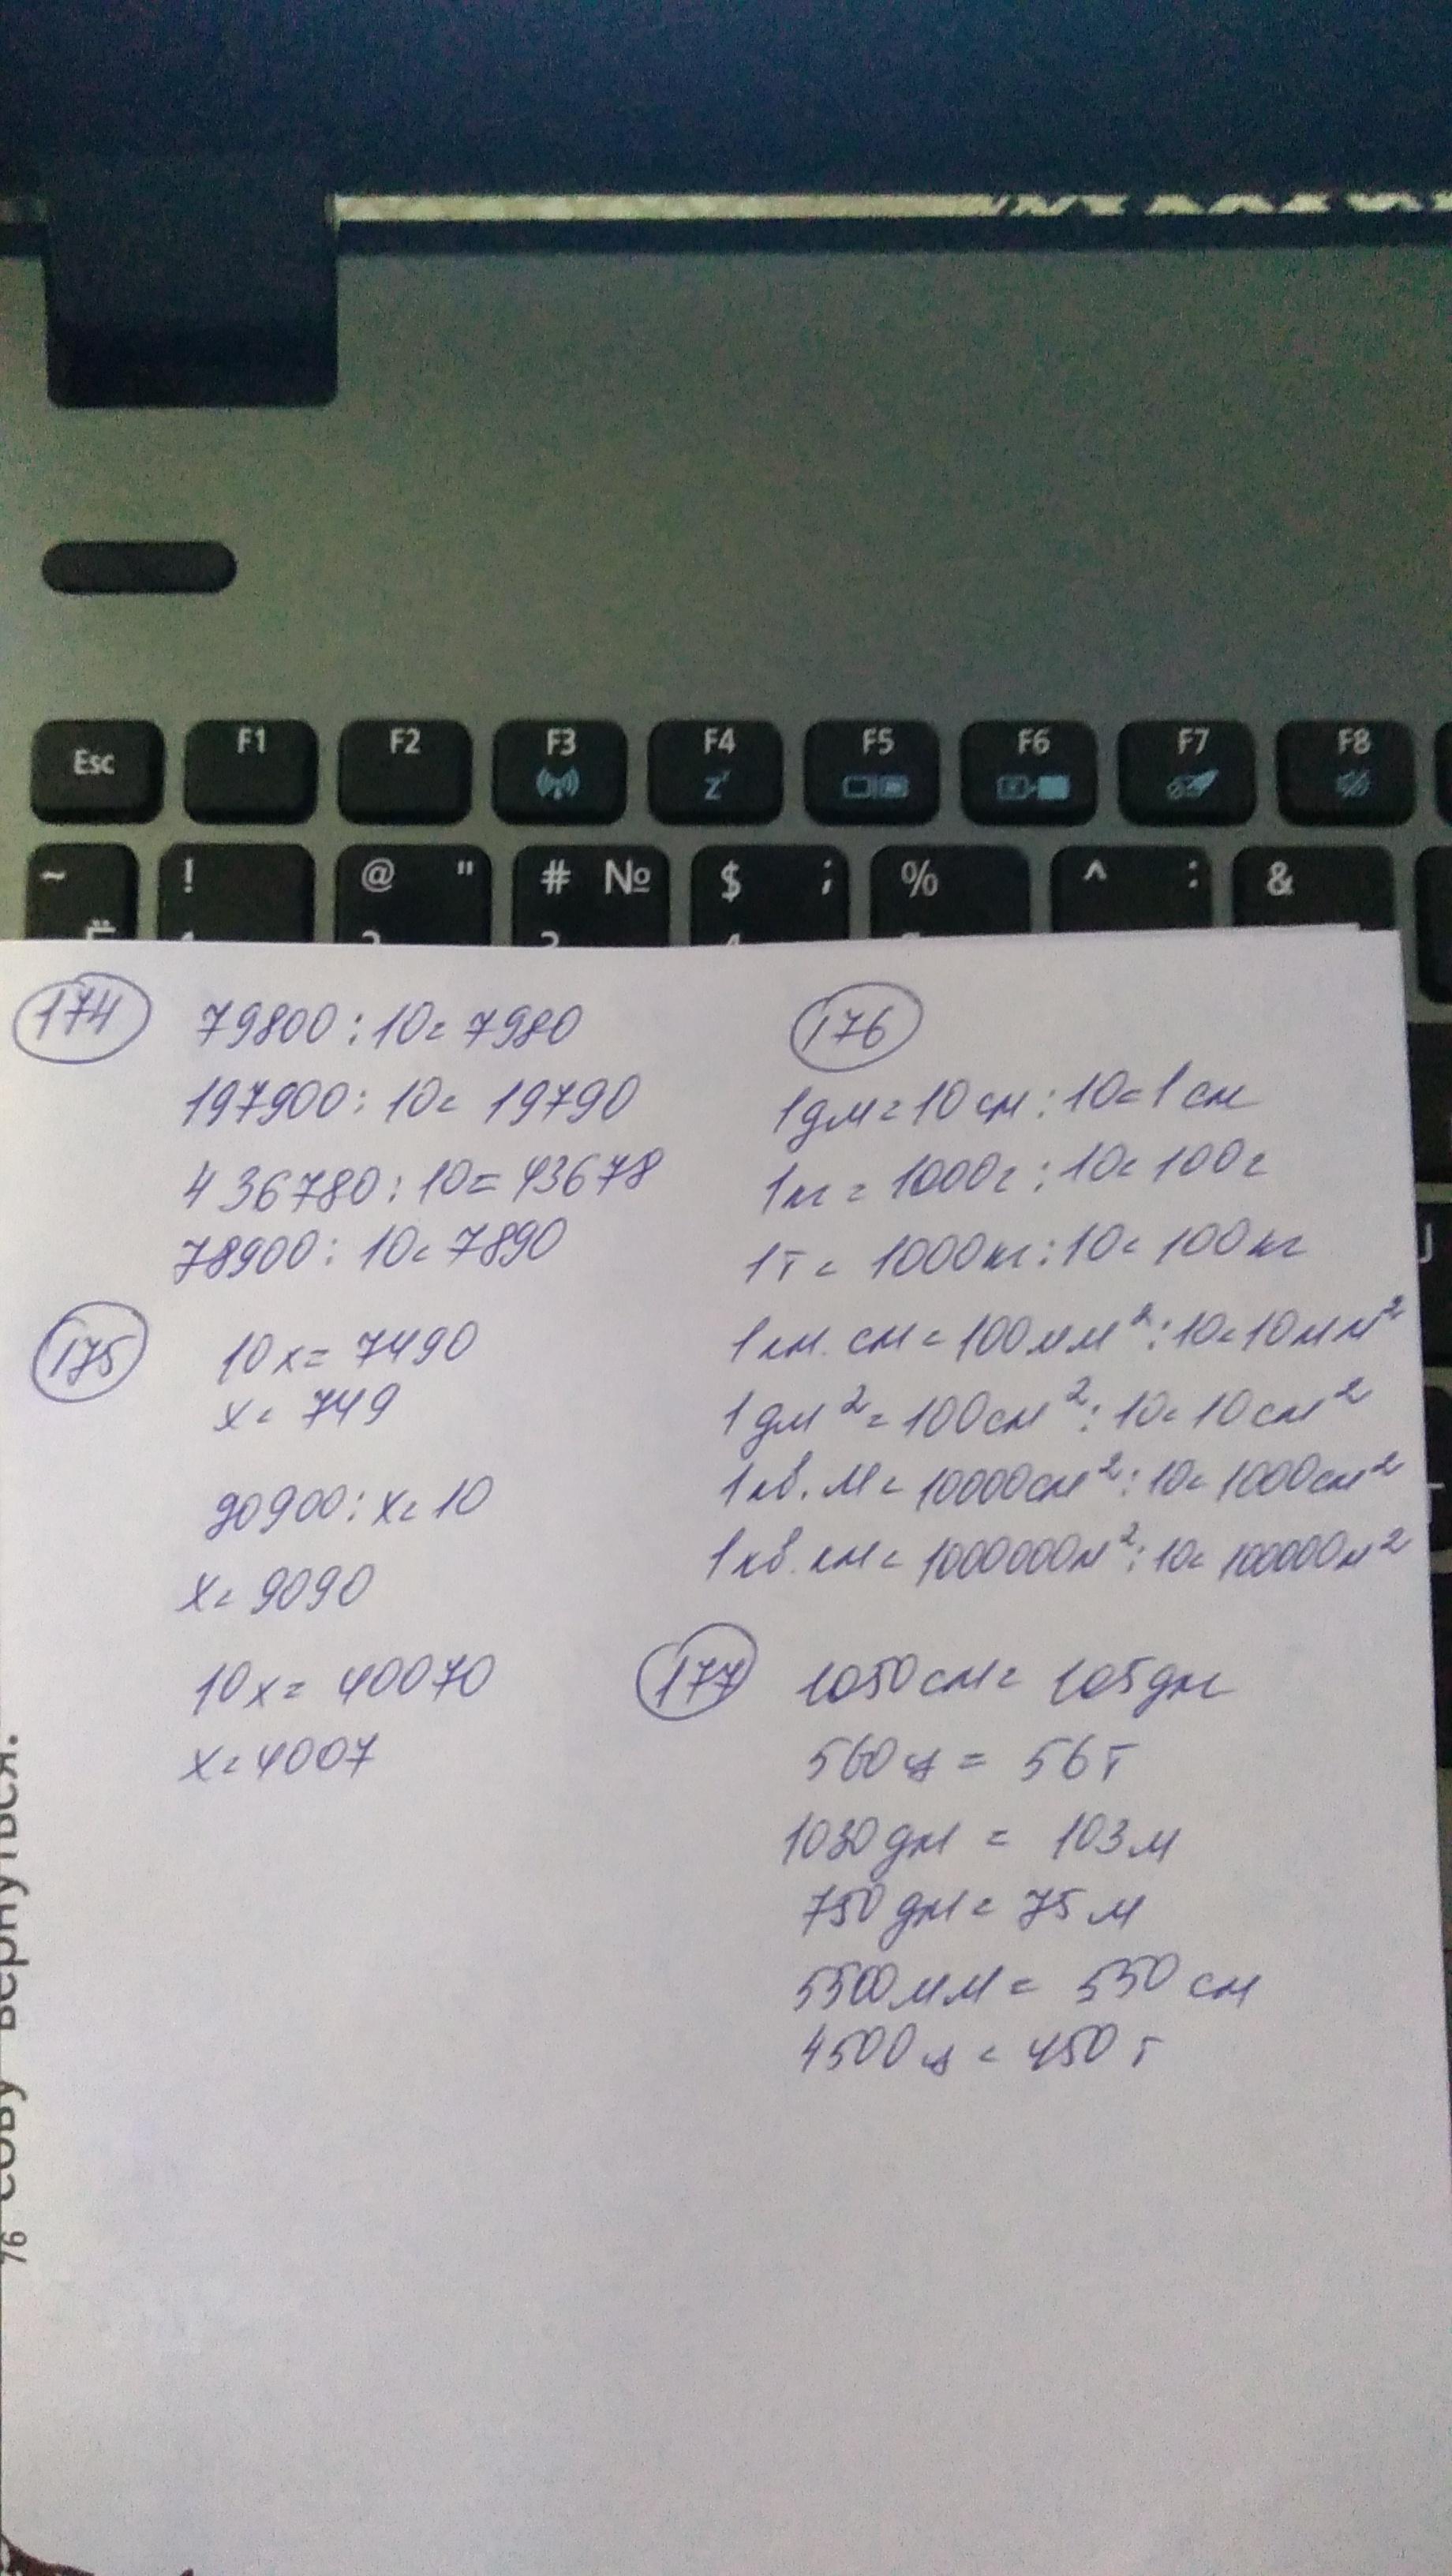 Esc F1 F2 F3 F4 z F5 F6 F7 F8
~ Ё ! @ " # № $ ; % ^ : &
J
174
79800 : 10 = 7980
197900 : 10 = 19790
436780 : 10 = 43678
78900 : 10 = 7890
175
10x = 7490
x = 749
90900 : x = 10
x = 9090
10x = 40070
x = 4007
176
1 дм = 10 см : 10 = 1 см
1 кг = 1000 г : 10 = 100 г
1 т = 1000 кг : 10 = 100 кг
1 км. см = 100 мм² : 10 = 10 мм²
1 дм² = 100 см² : 10 = 10 см²
1 кв. м = 10000 см² : 10 = 1000 см²
1 кв. км = 1000000 м² : 10 = 100000 м²
177
1050 см = 105 дм
560 ц = 56 т
1030 дм = 103 м
750 дм = 75 м
5500 мм = 550 см
4500 ц = 450 т
76 сову вернуться.